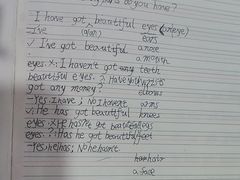 do you have?
I have got beautiful eyes (an eye)
I've ears
✓ I've got beautiful a nose
a mouth
eyes. X: I haven't got any teeth
beautiful eyes. ?: Have you
got any money? elbows
-Yes. I have; No I haven't arms
✓: He has got beautiful knees
eyes. X: He hasn't got beautiful
eyes. ?: Has he got beautiful feet
-Yes he has; No he hasn't
hair
a face